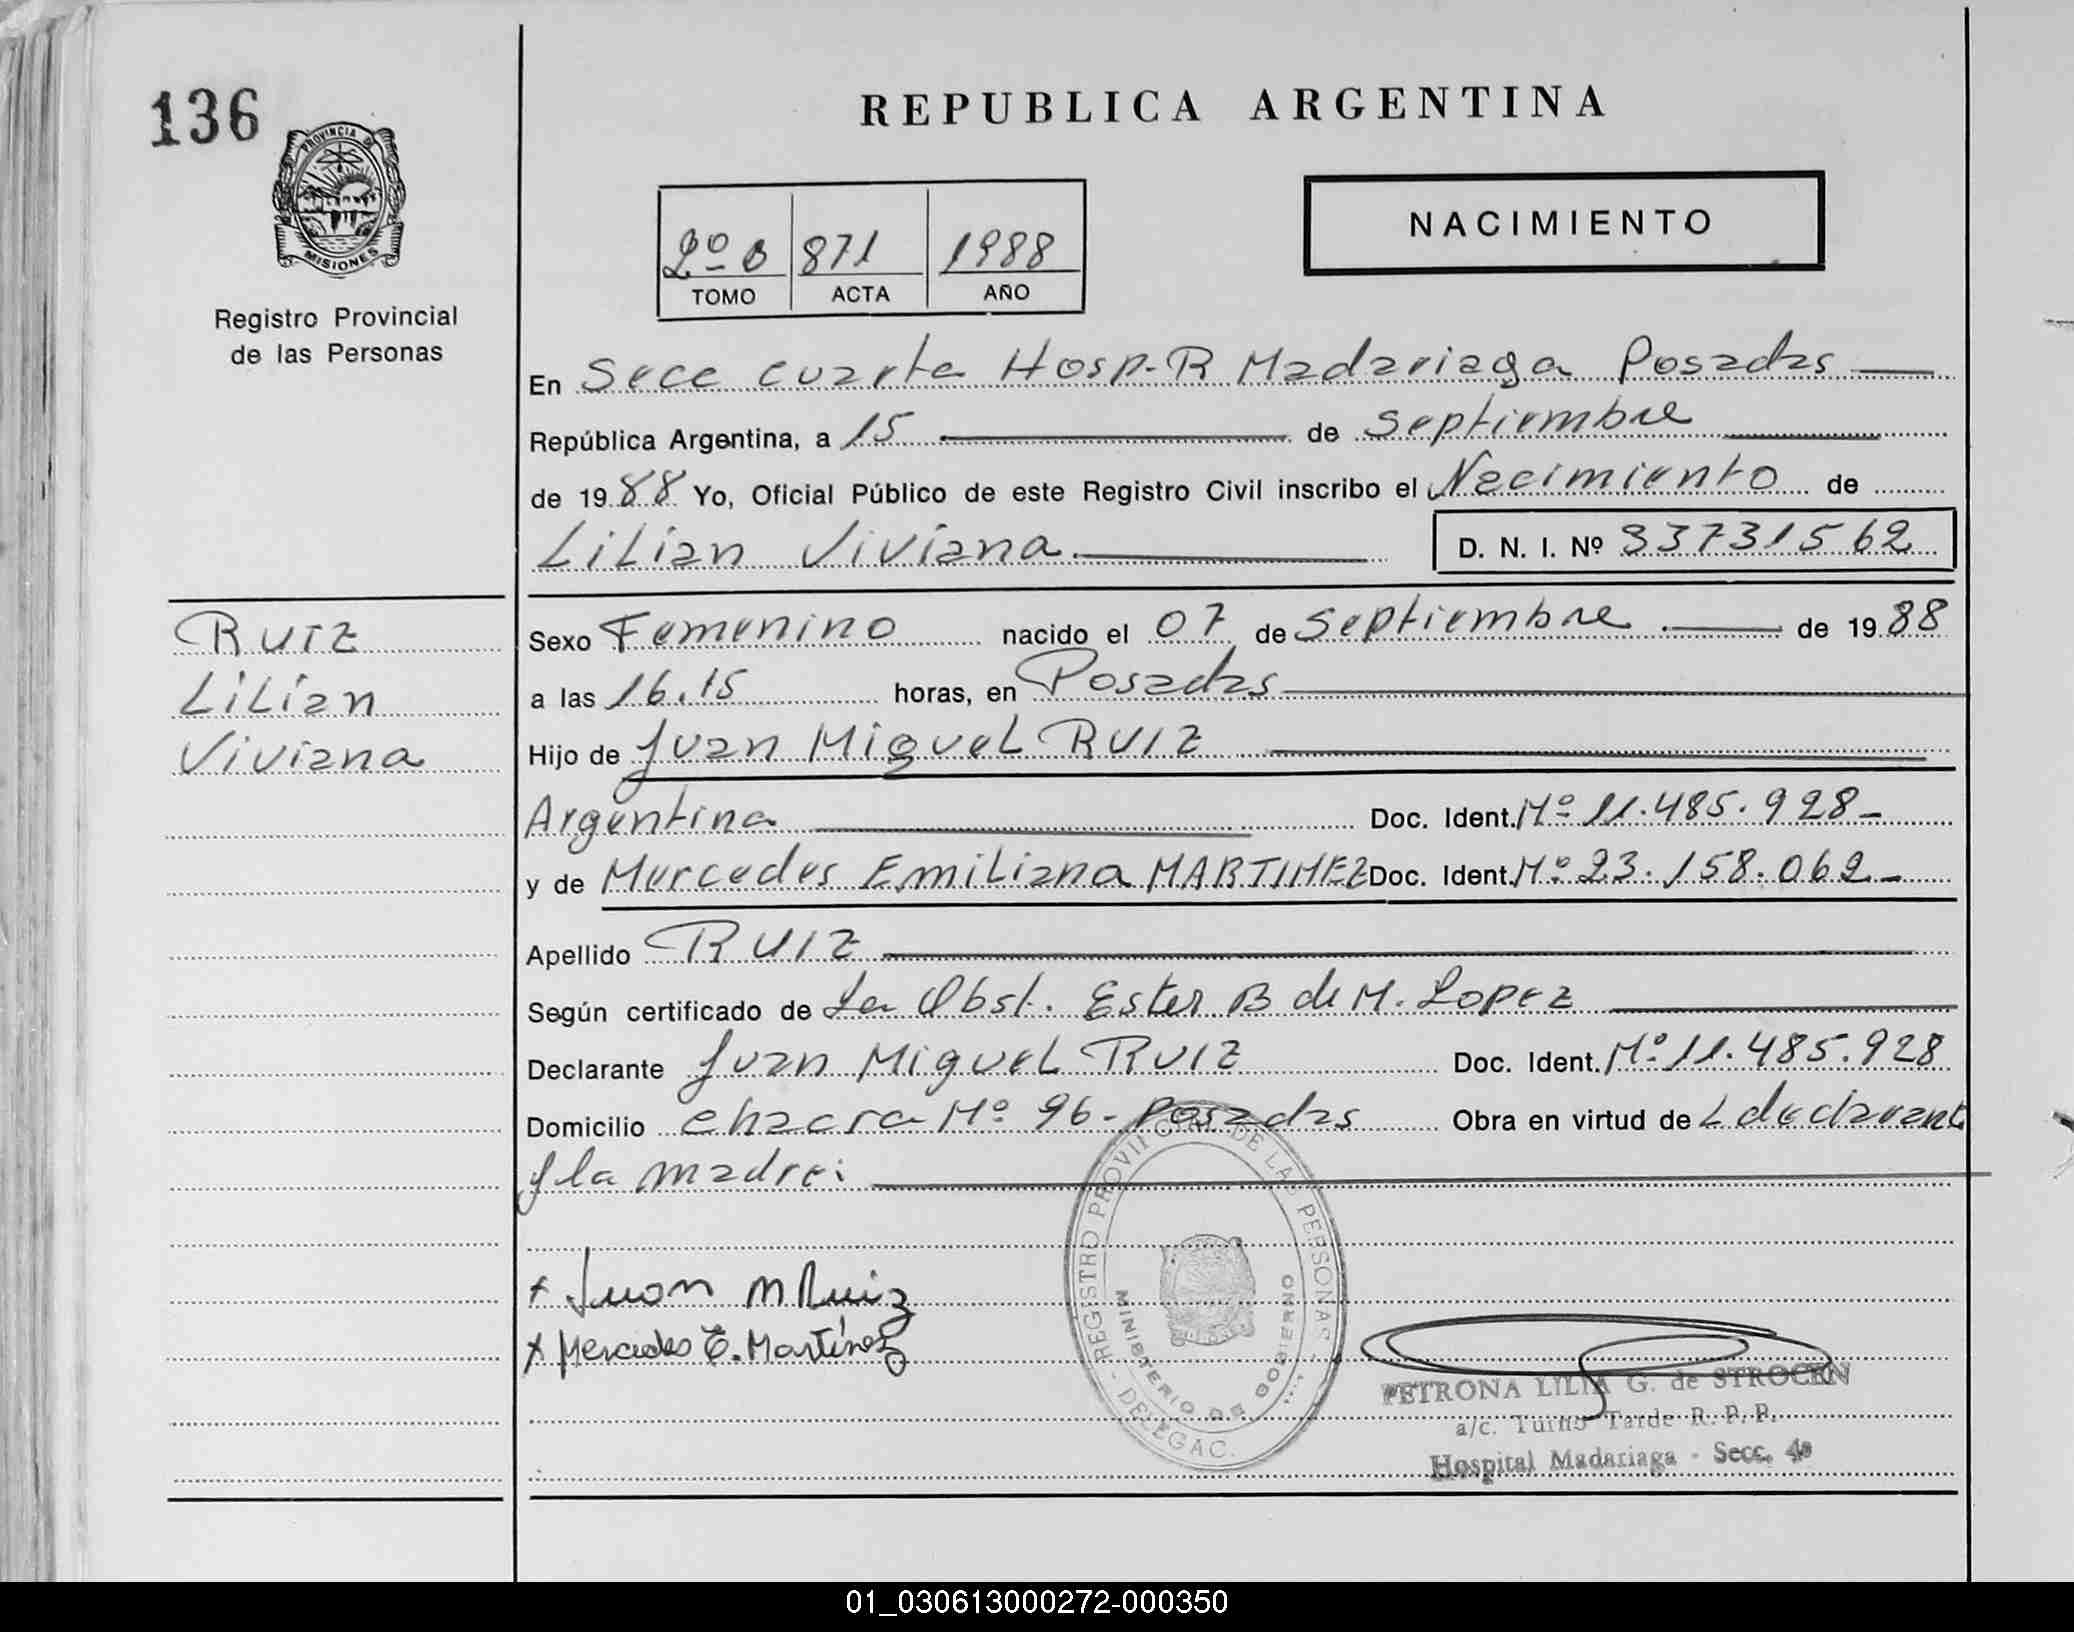 136
PROVINCIA DE
MISIONES
Registro Provincial
de las Personas
REPUBLICA ARGENTINA
2º B 871 1988
TOMO ACTA AÑO
NACIMIENTO
En Secc cuarta Hosp. R Madariaga Posadas
República Argentina, a 15 de septiembre
de 1988 Yo, Oficial Público de este Registro Civil inscribo el Nacimiento de
Lilian Viviana D. N. I. Nº 33731562
Ruiz
Lilian
Viviana
Sexo Femenino nacido el 07 de septiembre de 1988
a las 16.15 horas, en Posadas
Hijo de Juan Miguel RUIZ
Argentina Doc. Ident. Nº 11.485.928-
y de Mercedes Emiliana MARTINEZ Doc. Ident. Nº 23.158.062-
Apellido RUIZ
Según certificado de La Obst. Ester B de M. Lopez
Declarante Juan Miguel RUIZ Doc. Ident. Nº 11.485.928
Domicilio chacra Nº 96- Posadas Obra en virtud de L declarant
y la madre:
REGISTRO PROVINCIAL DE LAS PERSONAS - DELEGAC.
MINISTERIO DE GOBIERNO
x Juan M Ruiz
x Mercedes E. Martínez
PETRONA LILIA G. de STROCEN
a/c. Turno Tarde R. P. P.
Hospital Madariaga - Secc. 4a
01_030613000272-000350